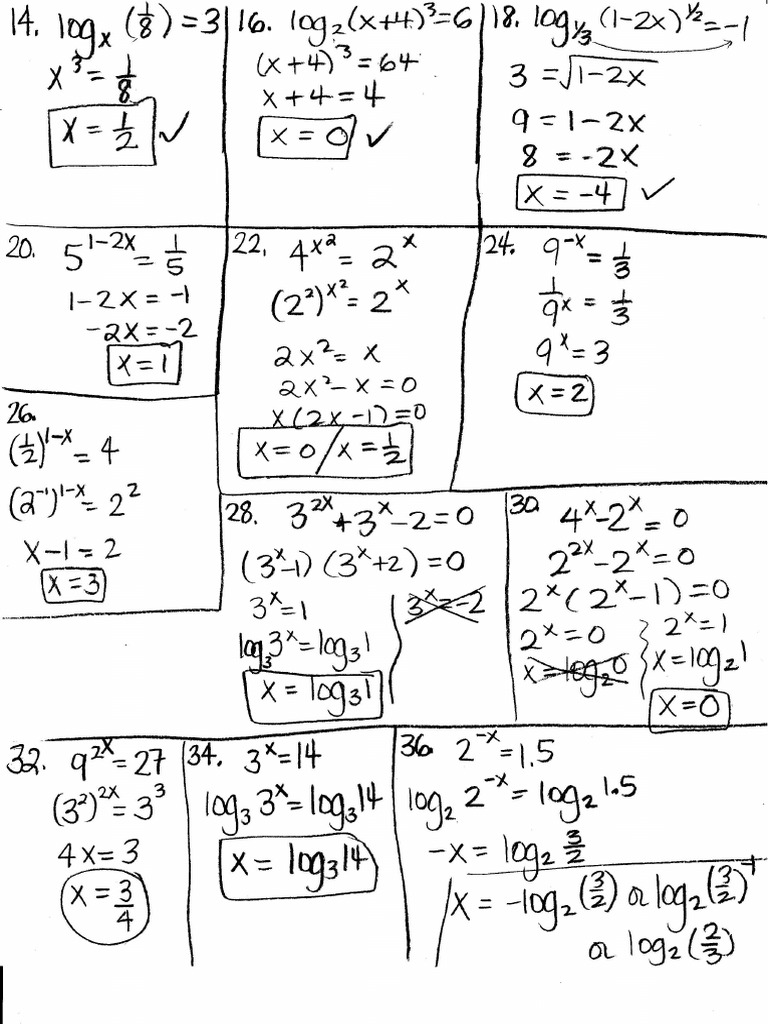 14. logₓ (1/8) = 3
x³ = 1/8
x = 1/2 ✓
16. log₂(x+4)³=6
(x+4)³=64
x+4=4
x=0 ✓
18. log₁/₃ (1-2x)^½=-1
3 = √1-2x
9 = 1-2x
8 = -2x
x = -4 ✓
20. 5^(1-2x) = 1/5
1-2x = -1
-2x = -2
x=1
22. 4^(x²) = 2^x
(2²)^(x²) = 2^x
2x² = x
2x²-x=0
x(2x-1)=0
x=0 / x=1/2
24. 9^(-x) = 1/3
1/9^x = 1/3
9^x = 3
x=2
26.
(1/2)^(1-x) = 4
(2⁻¹)^(1-x) = 2²
x-1=2
x=3
28. 3^(2x)+3^x-2=0
(3^x-1) (3^x+2)=0
3^x=1
3^x=-2
log₃3^x=log₃1
x = log₃1
30. 4^x-2^x=0
2^(2x)-2^x=0
2^x(2^x-1)=0
2^x=0
2^x=1
x=log₂0
x=log₂1
x=0
32. 9^(2x)=27
(3²)^(2x)=3³
4x=3
x=3/4
34. 3^x=14
log₃3^x=log₃14
x = log₃14
36. 2^(-x)=1.5
log₂ 2^(-x)=log₂1.5
-x = log₂ 3/2
x = -log₂(3/2) or log₂(3/2)⁻¹
or log₂(2/3)